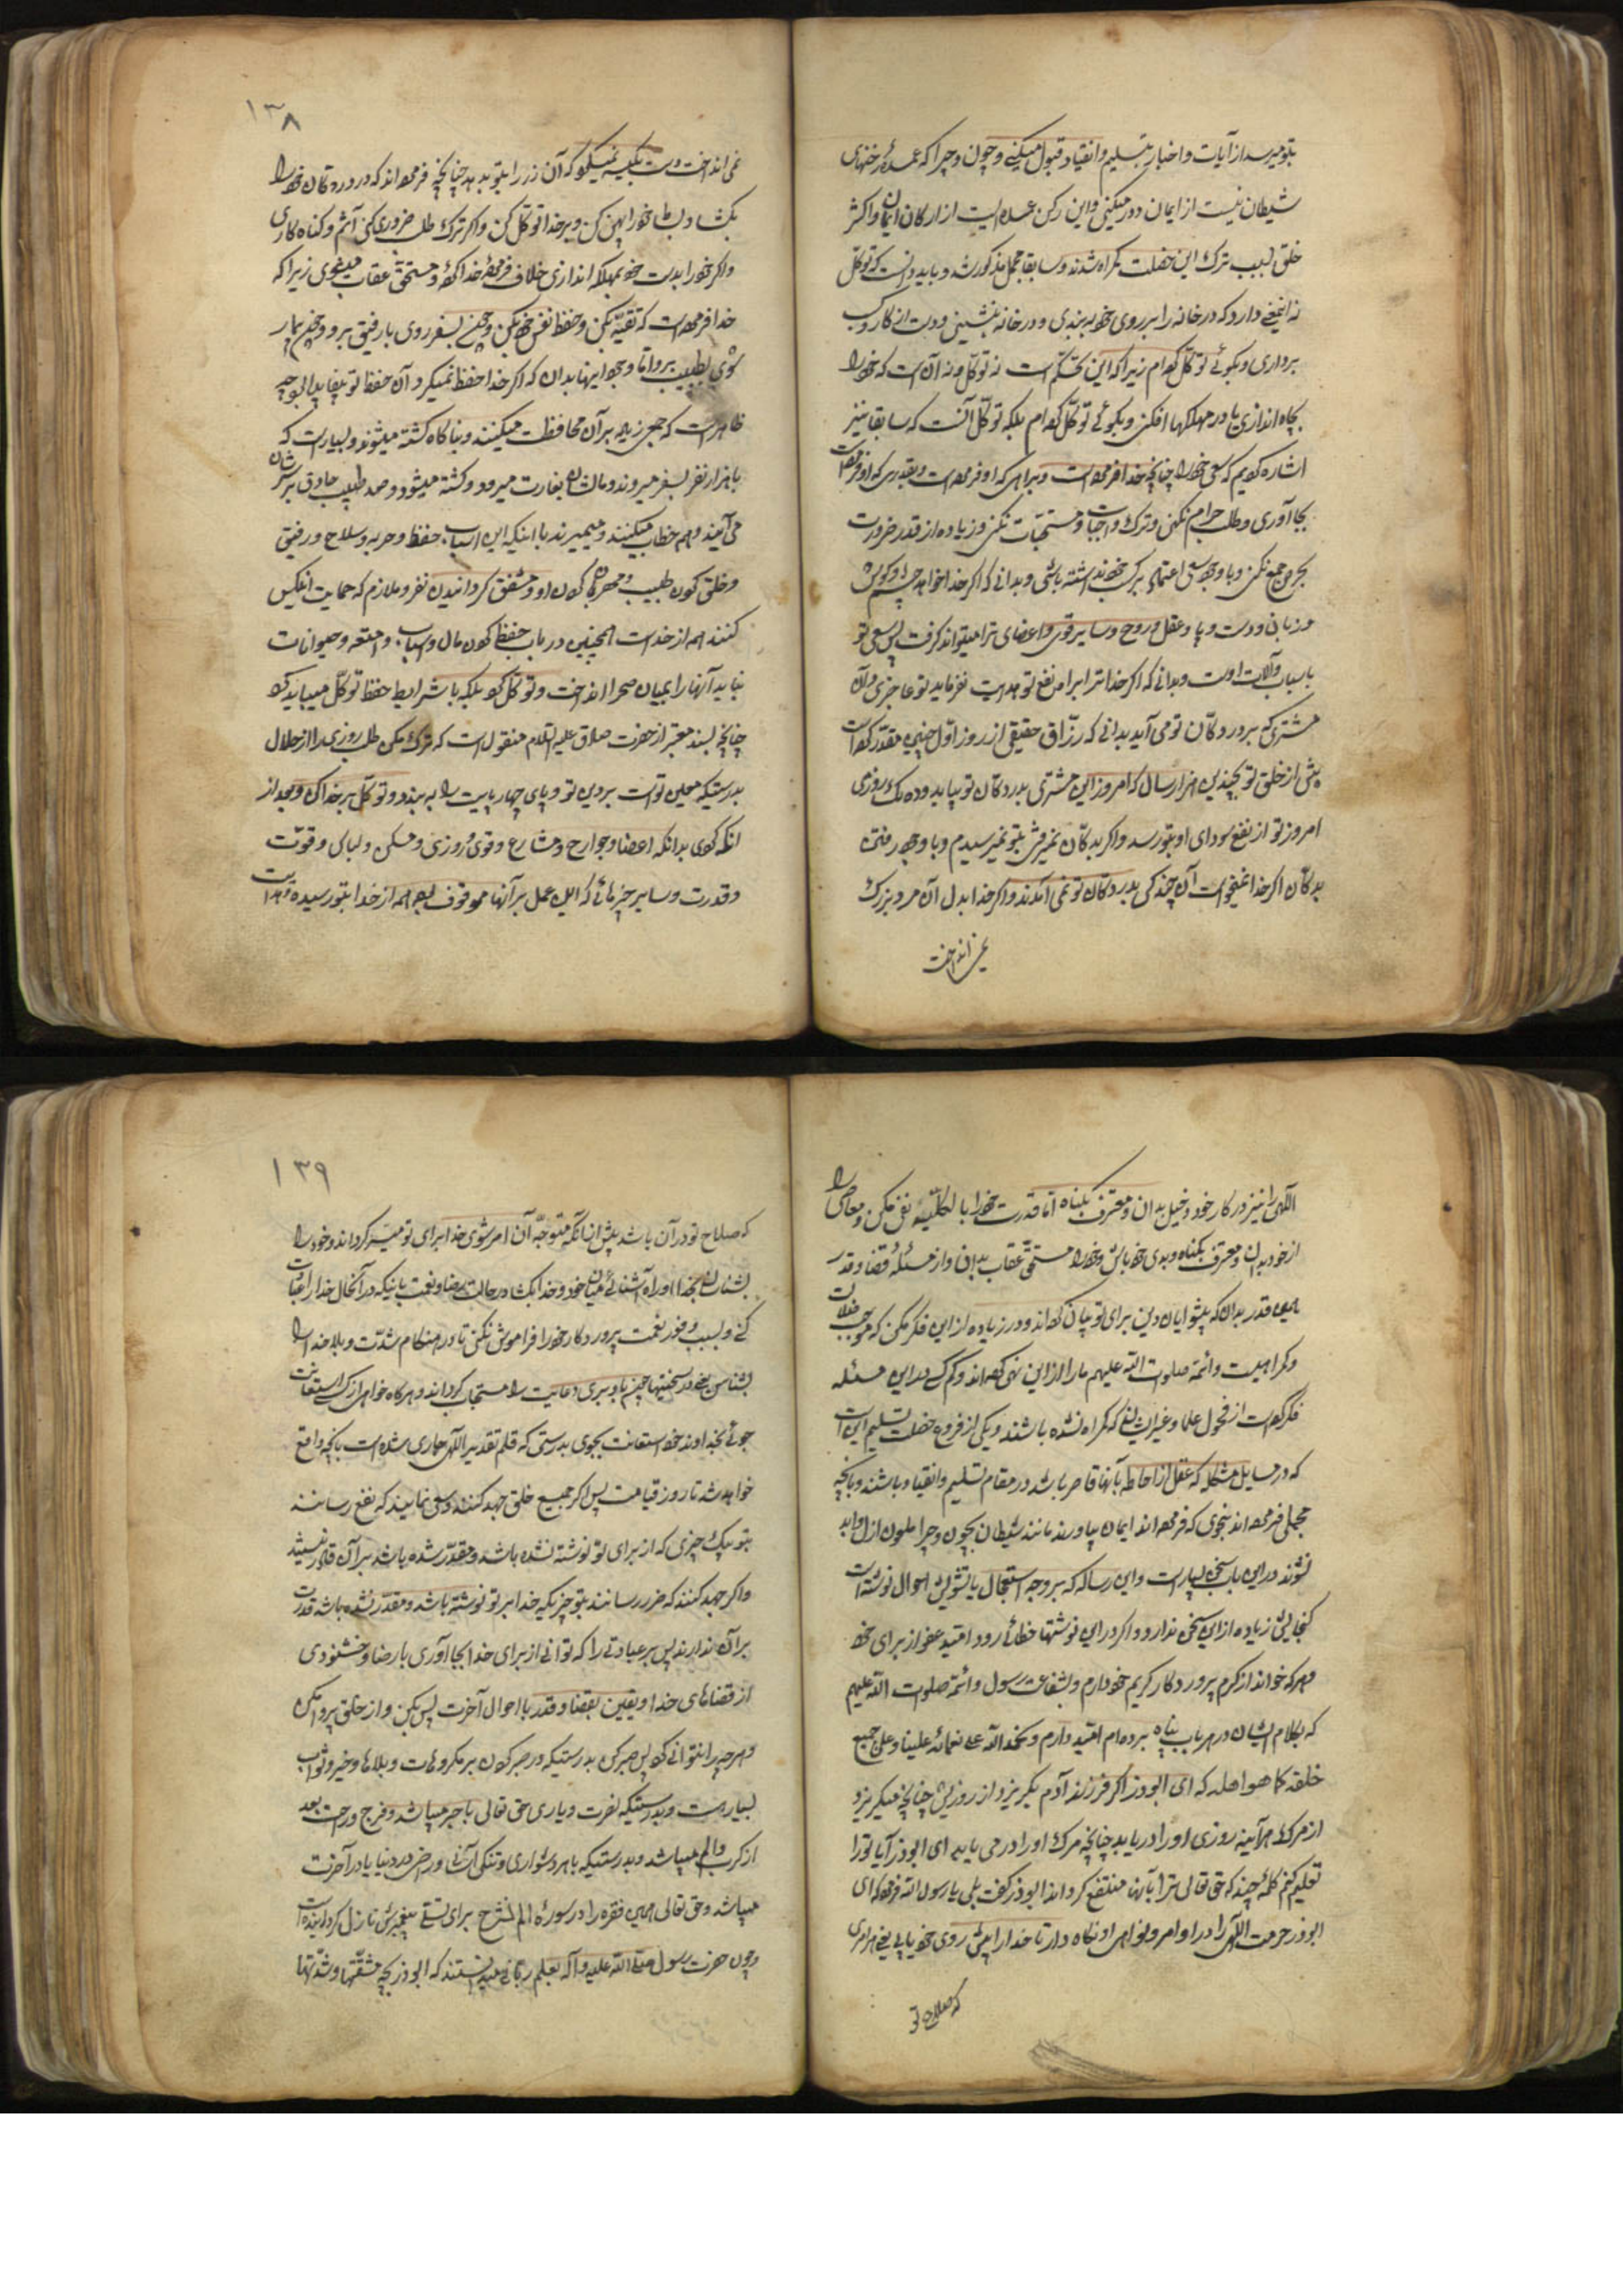 بتو میرسد از آیات و اخبار بتسلیم و انقیاد قبول میکنی و چون و چرا که عمدهٔ رخنهای
شیطان نیست از ایمان دور میکنی و این رکن عمده ایست از ارکان ایمان و اکثر
خلق بسبب ترک این خصلت گمراه شدند و سابقا مجمل مذکور شد و باید دانست که توکل
نه اینمعنی دارد که در خانه را بر روی خود به بندی و در خانه بنشینی و دست از کار و کسب
برداری و بگوئی توکل کرده‌ام زیرا که این تحکم است نه توکل و نه آن است که خود را
بچاه اندازی یا در مهلکها افکنی و بگوئی توکل کرده‌ام بلکه توکل آنست که سابقا نیز
اشاره کردیم که سعی خود را چنانچه خدا فرموده است و براهی که او فرموده است و بقدری که او فرموده است
بجا آوری و طلب حرام نکنی و ترک واجبات و مستحبات نکنی و زیاده از قدر ضرورت
حرص جمع نکنی و با وجود سعی اعتماد بر کسب خود نداشته باشی و بدانی که اگر خدا خواهد چشم و گوش
و زبان و دست و پا و عقل و روح و سایر قوی و اعضای ترا میتواند گرفت پس سعی تو
باسباب و آلات اوست و بدانی که اگر خدا ترا براه نفع تو هدایت نفرماید تو عاجزی و آن
مشتری که بر در دکان تو می آید بدانی که رزاق حقیقی از روز اول چنین مقدر کرده است
پیش از خلق تو بچندین هزار سال که امروز این مشتری بدر دکان تو بیاید و ده یک روزی
امروز تو از نفع سودای او بتو رسد و اگر بدکان نمیرفتی بتو نمیرسیدم و با وجود رفتن
بدکان اگر خدا نمیخواست آن چند کس بدر دکان تو نمی آمدند و اگر خدا بدل آن مرد بزرگ
نمی انداخت
۱۳۸
نمی انداخت دست بکیسه نمیکرد که آن زر را بتو بدهد چنانچه فرموده‌اند که در دکان خود را
بگشا و بساط خود را پهن کن و بر خدا توکل کن و اگر ترک طلب ضروری کنی آثم و گناه کاری
و اگر خود را بدست خود بمهلکه اندازی خلاف فرمودهٔ خدا کرده و مستحق عقاب میشوی زیرا که
خدا فرموده است که تقیه بکن و حفظ نفس خود بکن و چون بسفر روی با رفیق برو و چون بیمار
شوی بطبیب برو اما وجود اینها بدان که اگر خدا حفظ نمیکرد آن حفظ تو بیفایده بود چه
ظاهر است که جمعی زیاده بر آن محافظت میکنند و بناگاه کشته میشوند و بسیار است که
با هزار نفر بسفر میروند و مالشان بغارت میرود و کشته میشود و صد طبیب حاذق بر سرشان
می آیند و هم خطاب میکنند و میمیرند با اینکه این اسباب حفظ و حربه و سلاح و رفیق
و خلق کردن طبیب و مهربان کردن او و مشفق گردانیدن نفر و ملازم که حمایت اینکس
کنند همه از خداست همچنین در باب حفظ کردن مال و اسباب و امتعه و حیوانات
نباید آنها را بمیان صحرا انداخت و توکل کرد بلکه با شرایط حفظ توکل میباید کرد
چنانچه بسند معتبر از حضرت صادق علیه السلام منقول است که ترک مکن طلب روزی را از حلال
بدرستیکه معین تو است بر دین تو و پای چهارپایت را ببند و توکل بر خدا کن و بعد از
آنکه کردی بدانکه اعضا و جوارح و مشاعر و قوی و روزی و مسکن و لباس و قوت
و قدرت و سایر چیزهائی که این عمل بر آنها موقوف بود همه از خدا بتو رسیده و هدایت
الهی را نیز در کار خود دخیل بدان و معترف بگناه اما قدرت خود را بالکلیه نفی مکن و معاصی را
از خود بدان و معترف بگناه و بدی خود باش و خود را مستحق عقاب بدان و از مسئله قضا و قدر
همین قدر بدان که پیشوایان دین برای تو بیان کرده‌اند و در زیاده از این فکر مکن که موجب ضلالت
و گمراهیست و ائمه صلوات الله علیهم ما را از این نهی کرده‌اند و کم کسی در این مسئله
فکر کرده است از فحول علما و غیر ایشان که گمراه نشده باشند و یکی از فروع خصلت تسلیم این است
که در مسایل مشکله که عقل از احاطه بآنها قاصر باشد در مقام تسلیم و انقیاد باشند و بآنچه
مجملی فرموده‌اند بنحوی که فرموده‌اند ایمان بیاورند مانند شیطان بچون و چرا ملعون ازل و ابد
نشوند در این باب سخن بسیار است و این رساله که بر وجه استعجال با تشویش احوال نوشته است
گنجایش زیاده از این سخن ندارد و اگر در این نوشتها خطائی رود امید عفو از برای خود
و هر که خواند از کرم پروردگار کریم خود دارم و بشفاعت رسول و ائمه صلوات الله علیهم
که بکلام ایشان در هر باب پناه برده‌ام امید دارم و نحمد الله علی نعمائه علینا و علی جمیع
خلقه کما هو اهله که ای ابوذر اگر فرزند آدم بگریزد از روزیش چنانچه میگریزد
از مرگ هرآینه روزی او را دریابد چنانچه مرگ او را در می یابد ای ابوذر آیا تو را
تعلیم کنم کلمهٔ چند که حق تعالی ترا بآنها منتفع گرداند ابوذر گفت بلی یا رسول الله فرمود که ای
ابوذر حرمت الهی را در اوامر و نواهی او نگاه دار تا خدا را پیش روی خود یابی یعنی هر امری
که صلاح تو
۱۳۹
که صلاح تو در آن باشد پیش از آنکه متوجه آن امر شوی خدا برای تو میسر گرداند و خود را
بشناسان بخدا و راه آشنائی میان خود و خدا بگشا در حالت رضا و نعمت باینکه در آنحال خدا را اطاعت
کنی و بسبب وفور نعمت پروردگار خود را فراموش نکنی تا در هنگام شدت و بلا خدا ترا
بشناسد یعنی در سختیها چون باو بری دعایت را مستجاب گرداند و هر گاه خواهی از کسی استعانت
جوئی بخداوند خود استعانت بجوی بدرستی که قلم تقدیر الهی جاری شده است بآنچه واقع
خواهد شد تا روز قیامت پس اگر جمیع خلق جهد کنند و سعی نمایند که نفع رسانند
بتو بیک چیزی که از برای تو نوشته نشده باشد و مقدر نشده باشد بر آن قادر نیستند
و اگر جهد کنند که ضرر رسانند بتو چیزیکه خدا بر تو نوشته باشد و مقدر نشده باشد قدرت
بر آن ندارند پس هر عبادتی را که توانی از برای خدا بجا آوری با رضا و خشنودی
از قضاهای خدا و یقین بقضا و قدر با احوال آخرت پس بکن و از خلق پروا مکن
و هر چه را نتوانی کرد پس صبر کن بدرستیکه در صبر کردن بر مکروهات و بلاها و خیر و ثواب
بسیار هست و بدرستیکه نصرت و یاری حق تعالی با صبر میباشد و فرج و راحت بعد
از کرب و الم میباشد و بدرستیکه با هر دشواری و تنگی آسانی و راحتی در دنیا یا در آخرت
میباشد و حق تعالی همین فقره را در سورهٔ الم نشرح برای تسلی پیغمبرش نازل گردانیده است
و چون حضرت رسول صلی الله علیه و آله بعلم ربانی میدانستند که ابوذر بچه مشقتها و شدتها